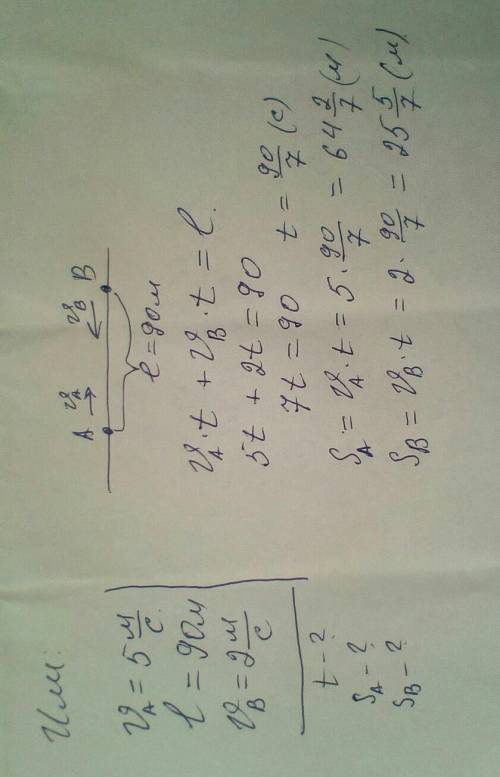 Или:
𝑣_A = 5 м/с
l = 90 м
𝑣_B = 2 м/с
t - ?
S_A - ?
S_B - ?
A 𝑣_A 𝑣_B B
l = 90 м
𝑣_A · t + 𝑣_B · t = l.
5t + 2t = 90
7t = 90 t = 90/7 (с)
S_A = 𝑣_A · t = 5 · 90/7 = 64 2/7 (м)
S_B = 𝑣_B · t = 2 · 90/7 = 25 5/7 (м)